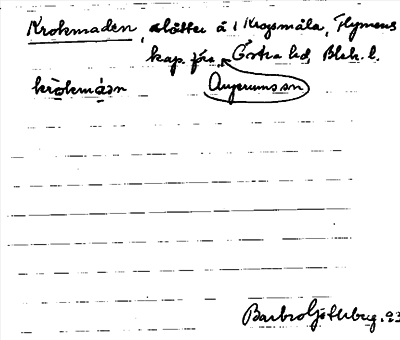 Krokmaden, slåtter å 1 Krogsmåla, Flymens
kap. förs. Östra hd, Blek. l.
Augerums sn
kròkmáən
Barbro Göthberg. 93